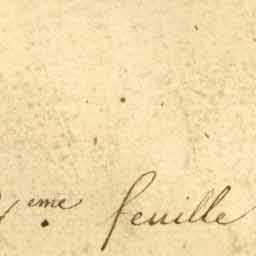 eme feuille